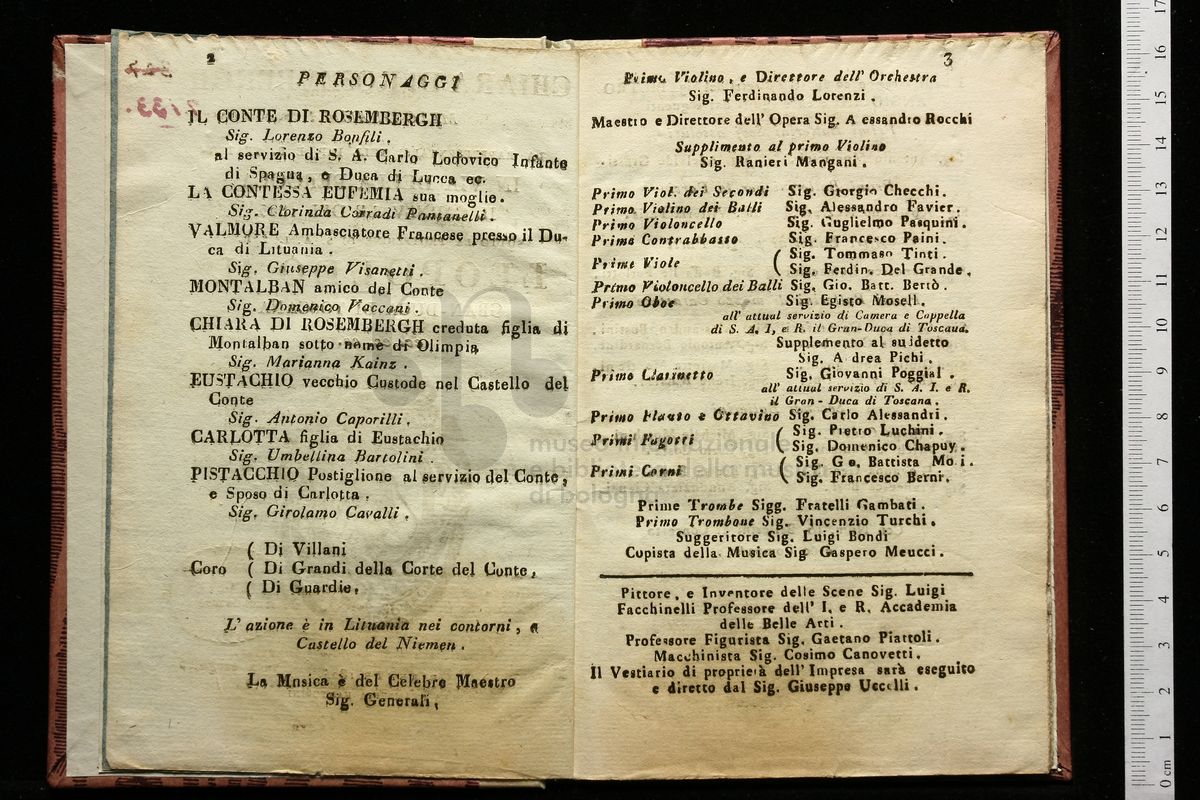 2
PERSONAGGI
IL CONTE DI ROSEMBERGH
Sig. Lorenzo Bonfili.
al servizio di S. A. Carlo Lodovico Infante
di Spagna, e Duca di Lucca ec.
LA CONTESSA EUFEMIA sua moglie.
Sig. Clorinda Corradi Pantanelli.
VALMORE Ambasciatore Francese presso il Du-
ca di Lituania.
Sig. Giuseppe Visanetti.
MONTALBAN amico del Conte
Sig. Domenico Vaccani.
CHIARA DI ROSEMBERGH creduta figlia di
Montalban sotto nome di Olimpia
Sig. Marianna Kainz.
EUSTACHIO vecchio Custode nel Castello del
Conte
Sig. Antonio Caporilli.
CARLOTTA figlia di Eustachio
Sig. Umbellina Bartolini.
PISTACCHIO Postiglione al servizio del Conte,
e Sposo di Carlotta.
Sig. Girolamo Cavalli.
( Di Villani
Coro ( Di Grandi della Corte del Conte,
( Di Guardie.
L'azione è in Lituania nei contorni, e
Castello del Niemen.
La Musica è del Celebre Maestro
Sig. Generali,
3
Primo Violino, e Direttore dell' Orchestra
Sig. Ferdinando Lorenzi.
Maestro e Direttore dell' Opera Sig. A essandro Rocchi
Supplimento al primo Violino
Sig. Ranieri Mangani.
Primo Viol. dei Secondi Sig. Giorgio Checchi.
Primo Violino dei Balli Sig. Alessandro Favier.
Primo Violoncello Sig. Guglielmo Pasquini.
Primo Contrabbasso Sig. Francesco Paini.
Prime Viole ( Sig. Tommaso Tinti.
( Sig. Ferdin. Del Grande.
Primo Violoncello dei Balli Sig. Gio. Batt. Bertò.
Primo Oboe Sig. Egisto Mosell.
all' attual servizio di Camera e Cappella
di S. A. I. e R. il Gran-Duca di Toscana.
Supplemento al suidetto
Sig. A drea Pichi.
Primo Clarinetto Sig. Giovanni Poggial.
all' attual servizio di S. A. I. e R.
il Gran-Duca di Toscana.
Primo Flauto e Ottavino Sig. Carlo Alessandri.
Primi Fagotti ( Sig. Pietro Luchini.
( Sig. Domenico Chapuy.
Primi Corni ( Sig. G o. Battista Mo i.
( Sig. Francesco Berni.
Prime Trombe Sigg. Fratelli Gambati.
Primo Trombone Sig. Vincenzio Turchi.
Suggeritore Sig. Luigi Bondi
Copista della Musica Sig Gaspero Meucci.
Pittore, e Inventore delle Scene Sig. Luigi
Facchinelli Professore dell' I. e R. Accademia
delle Belle Arti.
Professore Figurista Sig. Gaetano Piattoli.
Macchinista Sig. Cosimo Canovetti.
Il Vestiario di proprietà dell' Impresa sarà eseguito
e diretto dal Sig. Giuseppe Uccelli.
museo internazionale
e biblioteca della musica
di bologna
0 cm 1 2 3 4 5 6 7 8 9 10 11 12 13 14 15 16 17